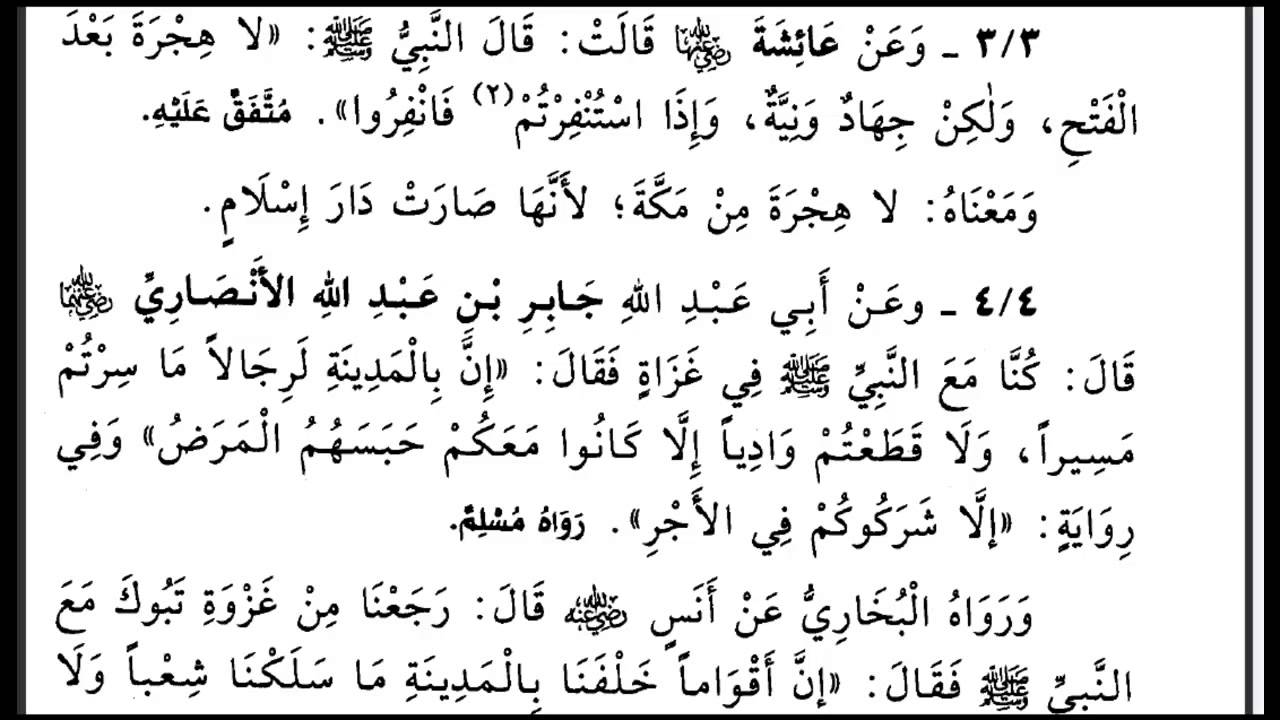 ٣/٣ ـ وَعَنْ عَائِشَةَ رضي الله عنها قَالَتْ: قَالَ النَّبِيُّ ﷺ: «لا هِجْرَةَ بَعْدَ
الْفَتْحِ، وَلٰكِنْ جِهَادٌ وَنِيَّةٌ، وَإِذَا اسْتُنْفِرْتُمْ(٢) فَانْفِرُوا». مُتَّفَقٌ عَلَيْهِ.
وَمَعْنَاهُ: لا هِجْرَةَ مِنْ مَكَّةَ؛ لأَنَّهَا صَارَتْ دَارَ إِسْلَامٍ.
٤/٤ ـ وعَنْ أَبِي عَبْدِ اللهِ جَابِرِ بْنِ عَبْدِ اللهِ الأَنْصَارِيِّ رضي الله عنهما
قَالَ: كُنَّا مَعَ النَّبِيِّ ﷺ فِي غَزَاةٍ فَقَالَ: «إِنَّ بِالْمَدِينَةِ لَرِجَالاً مَا سِرْتُمْ
مَسِيراً، وَلَا قَطَعْتُمْ وَادِياً إِلَّا كَانُوا مَعَكُمْ حَبَسَهُمُ الْمَرَضُ» وَفِي
رِوَايَةٍ: «إلَّا شَرَكُوكُمْ فِي الأَجْرِ». رَوَاهُ مُسْلِمٌ.
وَرَوَاهُ الْبُخَارِيُّ عَنْ أَنَسٍ رضي الله عنه قَالَ: رَجَعْنَا مِنْ غَزْوَةِ تَبُوكَ مَعَ
النَّبِيِّ ﷺ فَقَالَ: «إنَّ أَقْوَاماً خَلْفَنَا بِالْمَدِينَةِ مَا سَلَكْنَا شِعْباً وَلَا